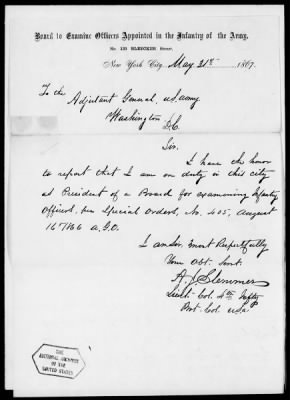 Board to Examine Officers Appointed in the Infantry of the Army,
No. 125 BLEECKER Street,
New York City, May 31st 1867.
To the
Adjutant General, U.S. Army
Washington
D.C.
Sir.
I have the honor
to report that I am on duty in this city
as President of a Board for examining Infantry
Officers, per Special Orders, No. 405, August
16th 1866 A.G.O.
I am Sir, most Respectfully
Your Obt. Servt.
A. J. Slemmer
Lieut. Col. 4th Infty
Bvt. Col. USA
THE
NATIONAL ARCHIVES
OF THE
UNITED STATES